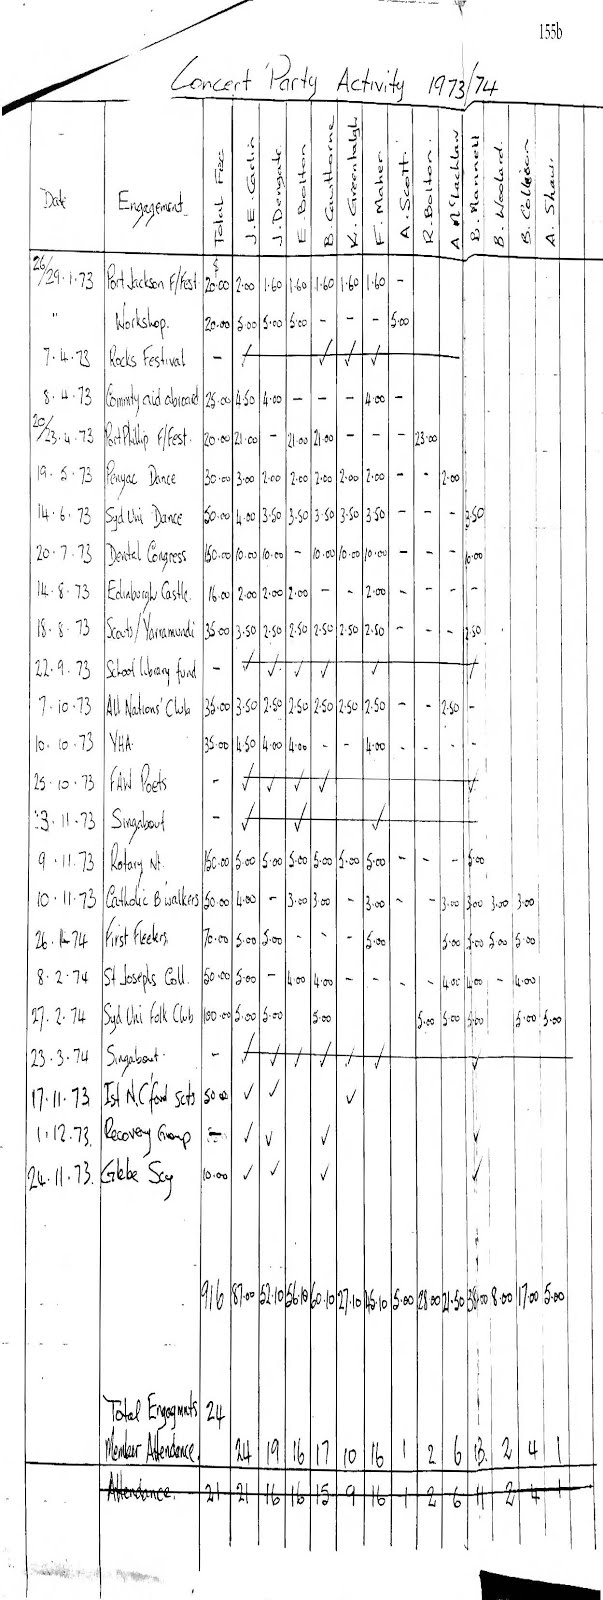 155b
Concert Party Activity 1973/74
Date Engagement Total Fee J.E. Carlin J. Dengate E. Bolton B. Cawthorne K. Greenhalgh F. Maher A. Scott. R. Bolton. A McLachlan B. Mannell B. Woolard. B. Collison A. Shaw.
$
26/29.1.73 Port Jackson F/Fest 20.00 2.00 1.60 1.60 1.60 1.60 1.60 -
" Workshop. 20.00 5.00 5.00 5.00 - - - 5.00
7.4.73 Rocks Festival - ✓ ✓ ✓ ✓
8.4.73 Commty aid abroad 25.00 4.50 4.00 - - - 4.00 -
20/23.4.73 Port Phillip F/Fest. 20.00 21.00 - 21.00 21.00 - - - 23.00
19.5.73 Penyac Dance 30.00 3.00 2.00 2.00 2.00 2.00 2.00 - - 2.00
14.6.73 Syd Uni Dance 50.00 4.00 3.50 3.50 3.50 3.50 3.50 - - - 3.50
20.7.73 Dental Congress 150.00 10.00 10.00 - 10.00 10.00 10.00 - - - 10.00
14.8.73 Edinburgh Castle. 16.00 2.00 2.00 2.00 - - 2.00 - - - -
18.8.73 Scouts/Yarramundi 35.00 3.50 2.50 2.50 2.50 2.50 2.50 - - - 2.50
22.9.73 School library fund - ✓ ✓ ✓ ✓ ✓ ✓
7.10.73 All Nations' Club 35.00 3.50 2.50 2.50 2.50 2.50 2.50 - - 2.50 -
10.10.73 YHA 35.00 4.50 4.00 4.00 - - 4.00 - - - -
25.10.73 FAW Poets - ✓ ✓ ✓ ✓ ✓
3.11.73 Singabout - ✓ ✓ ✓
9.11.73 Rotary Nt. 150.00 5.00 5.00 5.00 5.00 5.00 5.00 - - - 5.00
10.11.73 Catholic B'walkers 50.00 4.00 - 3.00 3.00 - 3.00 - - 3.00 3.00 3.00 3.00
26.1.74 First Fleeters 70.00 5.00 5.00 - - - 5.00 5.00 5.00 5.00 5.00
8.2.74 St Josephs Coll. 50.00 5.00 - 4.00 4.00 - - - - 4.00 4.00 - 4.00
27.2.74 Syd Uni Folk Club 100.00 5.00 5.00 5.00 5.00 5.00 5.00 5.00 5.00
23.3.74 Singabout. - ✓ ✓ ✓ ✓ ✓ ✓ ✓
17.11.73 Ist N.C'ford scts 50.00 ✓ ✓ ✓
1.12.73. Recovery Group - ✓ ✓ ✓ ✓
24.11.73. Glebe Scy 10.00 ✓ ✓ ✓ ✓
916 87.00 52.10 56.10 60.10 27.10 45.10 5.00 28.00 21.50 38.00 8.00 17.00 5.00
Total Engagmnts 24
Member Attendance. 24 19 16 17 10 16 1 2 6 13. 2 4 1
Attendance. 21 21 16 16 15 9 16 1 2 6 11 2 4 1